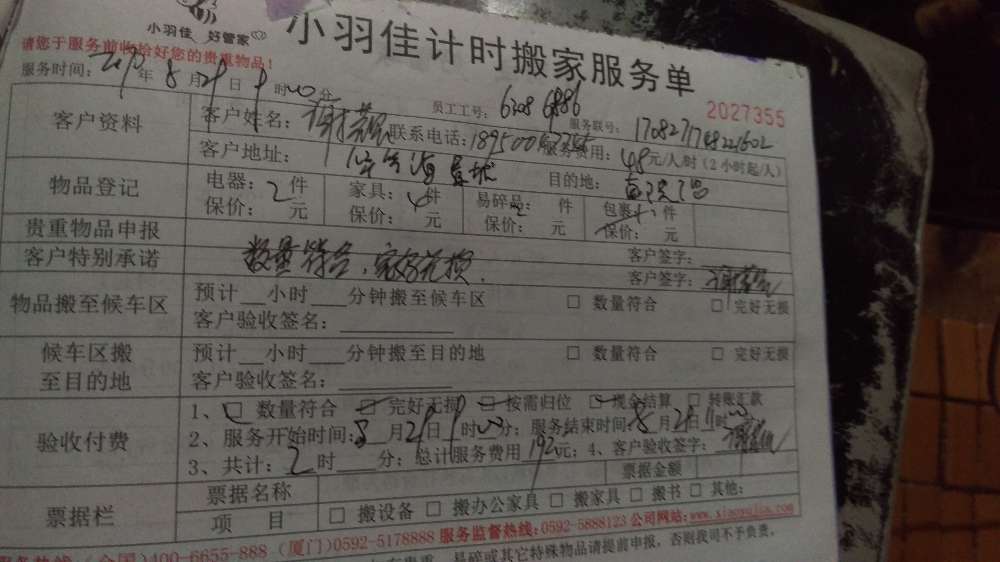 小羽佳 好管家
小羽佳计时搬家服务单
请您于服务前收拾好您的贵重物品!
服务时间: 年 8 月 29 日 9 时00分
员工工号: 6308 6886
2027355
客户资料
客户姓名: 联系电话:
服务联号:
服务费用: 48元/人/时(2小时起/人)
客户地址:
目的地:
物品登记
电器: 2 件 家具: 件 易碎品: 件 包裹 件
保价: 元 保价: 元 保价: 元 保价: 元
贵重物品申报
客户签字:
客户特别承诺
数量符合、完好无损.
客户签字:
物品搬至候车区
预计 小时 分钟搬至候车区 □ 数量符合 □ 完好无损
客户验收签名:
候车区搬至目的地
预计 小时 分钟搬至目的地 □ 数量符合 □ 完好无损
客户验收签名:
验收付费
1、□ 数量符合 □ 完好无损 □ 按需归位 □ 现金结算 □ 转账汇款
2、服务开始时间:8月29日9时00分; 服务结束时间:8月29日11时00
3、共计: 2 时 分; 总计服务费用 192 元; 4、客户验收签字:
票据栏
票据名称 票据金额
项 目 □ 搬设备 □ 搬办公家具 □ 搬家具 □ 搬书 □ 其他:
服务热线: (全国)400-6655-888 (厦门)0592-5178888 服务监督热线:0592-5888123 公司网站:www.xiaoyujia.com
贵重、易碎或其它特殊物品请提前申报,否则我司不予负责,